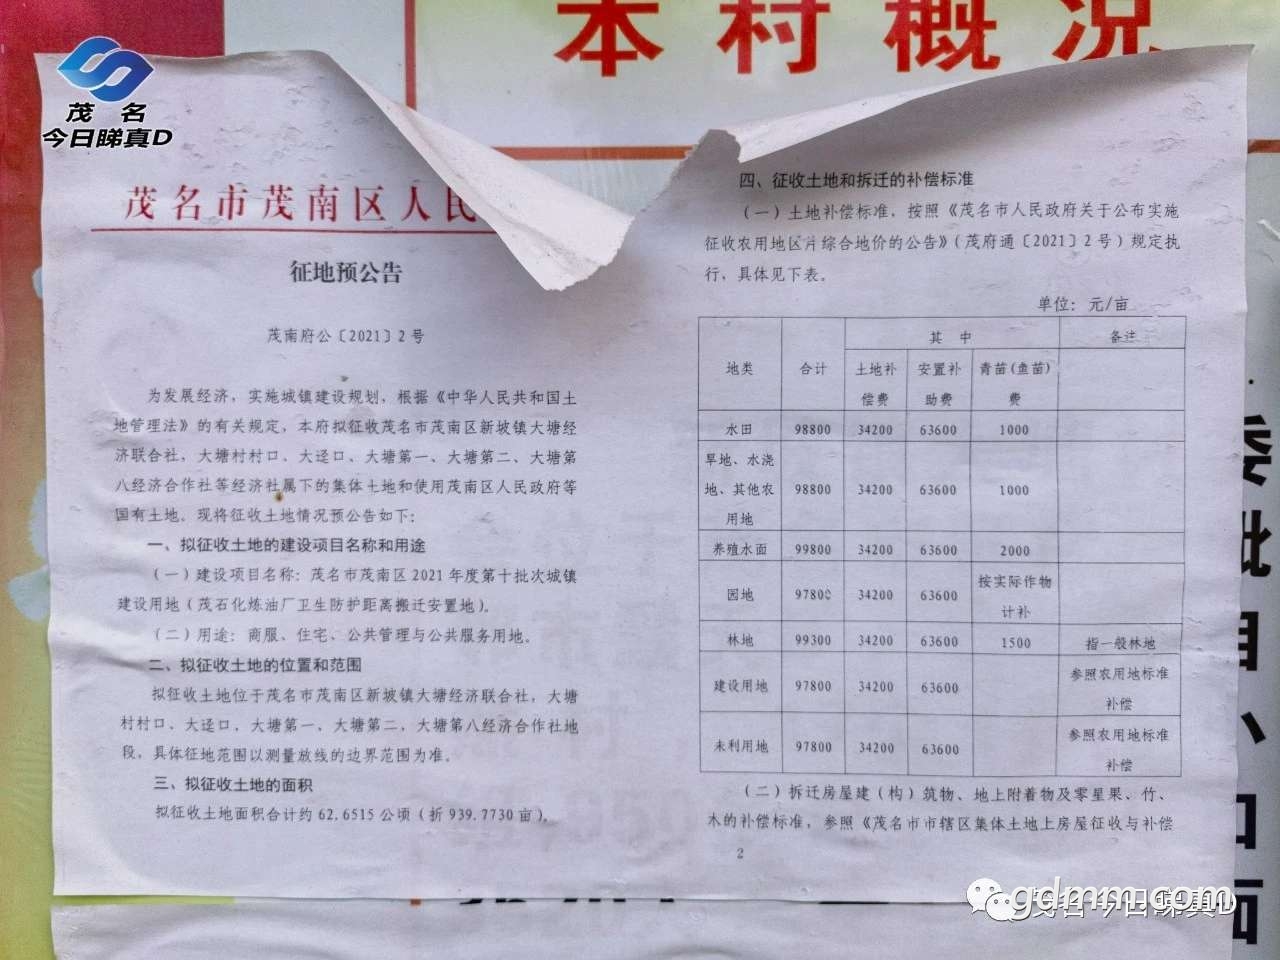 本村概况
茂名
今日睇真D
茂名市茂南区人民
征地预公告
茂南府公〔2021〕2号
为发展经济，实施城镇建设规划，根据《中华人民共和国土
地管理法》的有关规定，本府拟征收茂名市茂南区新坡镇大塘经
济联合社，大塘村村口、大迳口、大塘第一、大塘第二、大塘第
八经济合作社等经济社属下的集体土地和使用茂南区人民政府等
国有土地。现将征收土地情况预公告如下：
一、拟征收土地的建设项目名称和用途
（一）建设项目名称：茂名市茂南区2021年度第十批次城镇
建设用地（茂石化炼油厂卫生防护距离搬迁安置地）。
（二）用途：商服、住宅、公共管理与公共服务用地。
二、拟征收土地的位置和范围
拟征收土地位于茂名市茂南区新坡镇大塘经济联合社，大塘
村村口、大迳口、大塘第一、大塘第二，大塘第八经济合作社地
段，具体征地范围以测量放线的边界范围为准。
三、拟征收土地的面积
拟征收土地面积合计约62.6515公顷（折939.7730亩）。
四、征收土地和拆迁的补偿标准
（一）土地补偿标准，按照《茂名市人民政府关于公布实施
征收农用地区片综合地价的公告》（茂府通〔2021〕2号）规定执
行，具体见下表。
单位：元/亩
地类 合计 其中 备注
土地补偿费 安置补助费 青苗(鱼苗)费
水田 98800 34200 63600 1000
旱地、水浇地、其他农用地 98800 34200 63600 1000
养殖水面 99800 34200 63600 2000
园地 97800 34200 63600 按实际作物计补
林地 99300 34200 63600 1500 指一般林地
建设用地 97800 34200 63600 参照农用地标准补偿
未利用地 97800 34200 63600 参照农用地标准补偿
（二）拆迁房屋建（构）筑物、地上附着物及零星果、竹、
木的补偿标准，参照《茂名市市辖区集体土地上房屋征收与补偿
2
gdmm.com
茂名今日睇真D